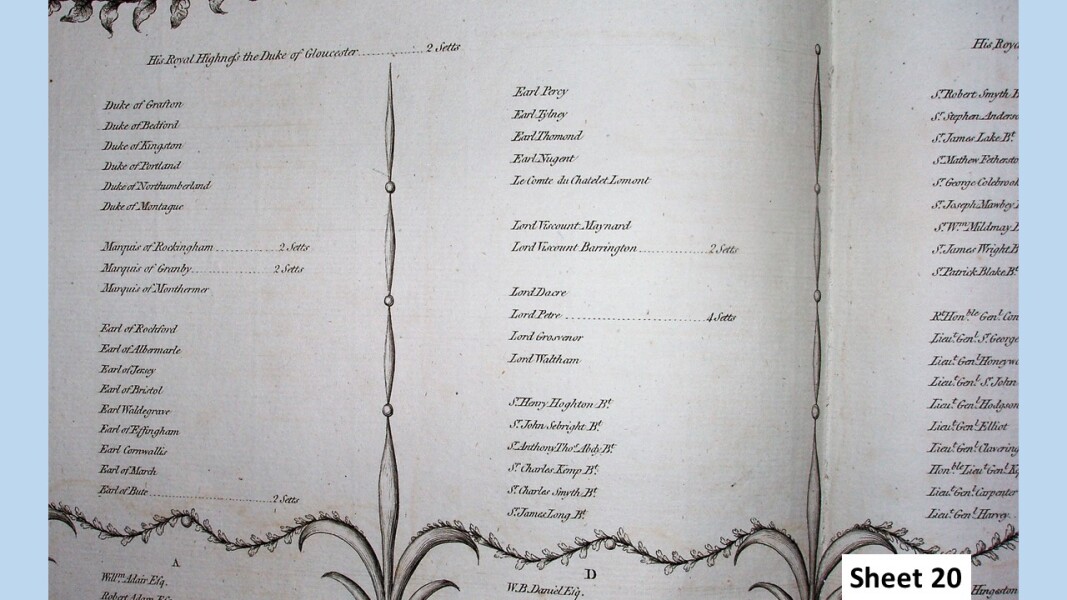 His Royal Highneſs the Duke of Gloucester 2 Setts
Duke of Grafton
Duke of Bedford
Duke of Kingston
Duke of Portland
Duke of Northumberland
Duke of Montague
Marquis of Rockingham 2 Setts
Marquis of Granby 2 Setts
Marquis of Monthermer
Earl of Rochford
Earl of Albermarle
Earl of Jersey
Earl of Bristol
Earl Waldegrave
Earl of Effingham
Earl Cornwallis
Earl of March
Earl of Bute 2 Setts
A
Willm. Adair Esq.
Robert Adam Esq.
Earl Percy
Earl Tylney
Earl Thomond
Earl Nugent
Le Comte du Chatelet Lomont
Lord Viscount Maynard
Lord Viscount Barrington 2 Setts
Lord Dacre
Lord Petre 4 Setts
Lord Grosvenor
Lord Waltham
Sr. Henry Hoghton Bt.
Sr. John Sebright Bt.
Sr. Anthony Thos. Abdy Bt.
Sr. Charles Kemp Bt.
Sr. Charles Smyth Bt.
Sr. James Long Bt.
D
W.B. Daniel Esq.
His
Sr. Robert Smyth
Sr. Stephen
Sr. James Lake Bt.
Sr. Mathew
Sr. George
Sr. Joseph Mawbey
Sr. Wm. Mildmay
Sr. James Wright
Sr. Patrick Blake Bt.
Rt. Honble. Genl.
Lieut. Genl. Sr. George
Lieut. Genl.
Lieut. Genl. Sr. John
Lieut. Genl. Hodgson
Lieut. Genl. Elliot
Lieut. Genl. Clavering
Honble. Lieut. Genl.
Lieut. Genl. Carpenter
Lieut. Genl. Harvey
Hingeston
Sheet 20